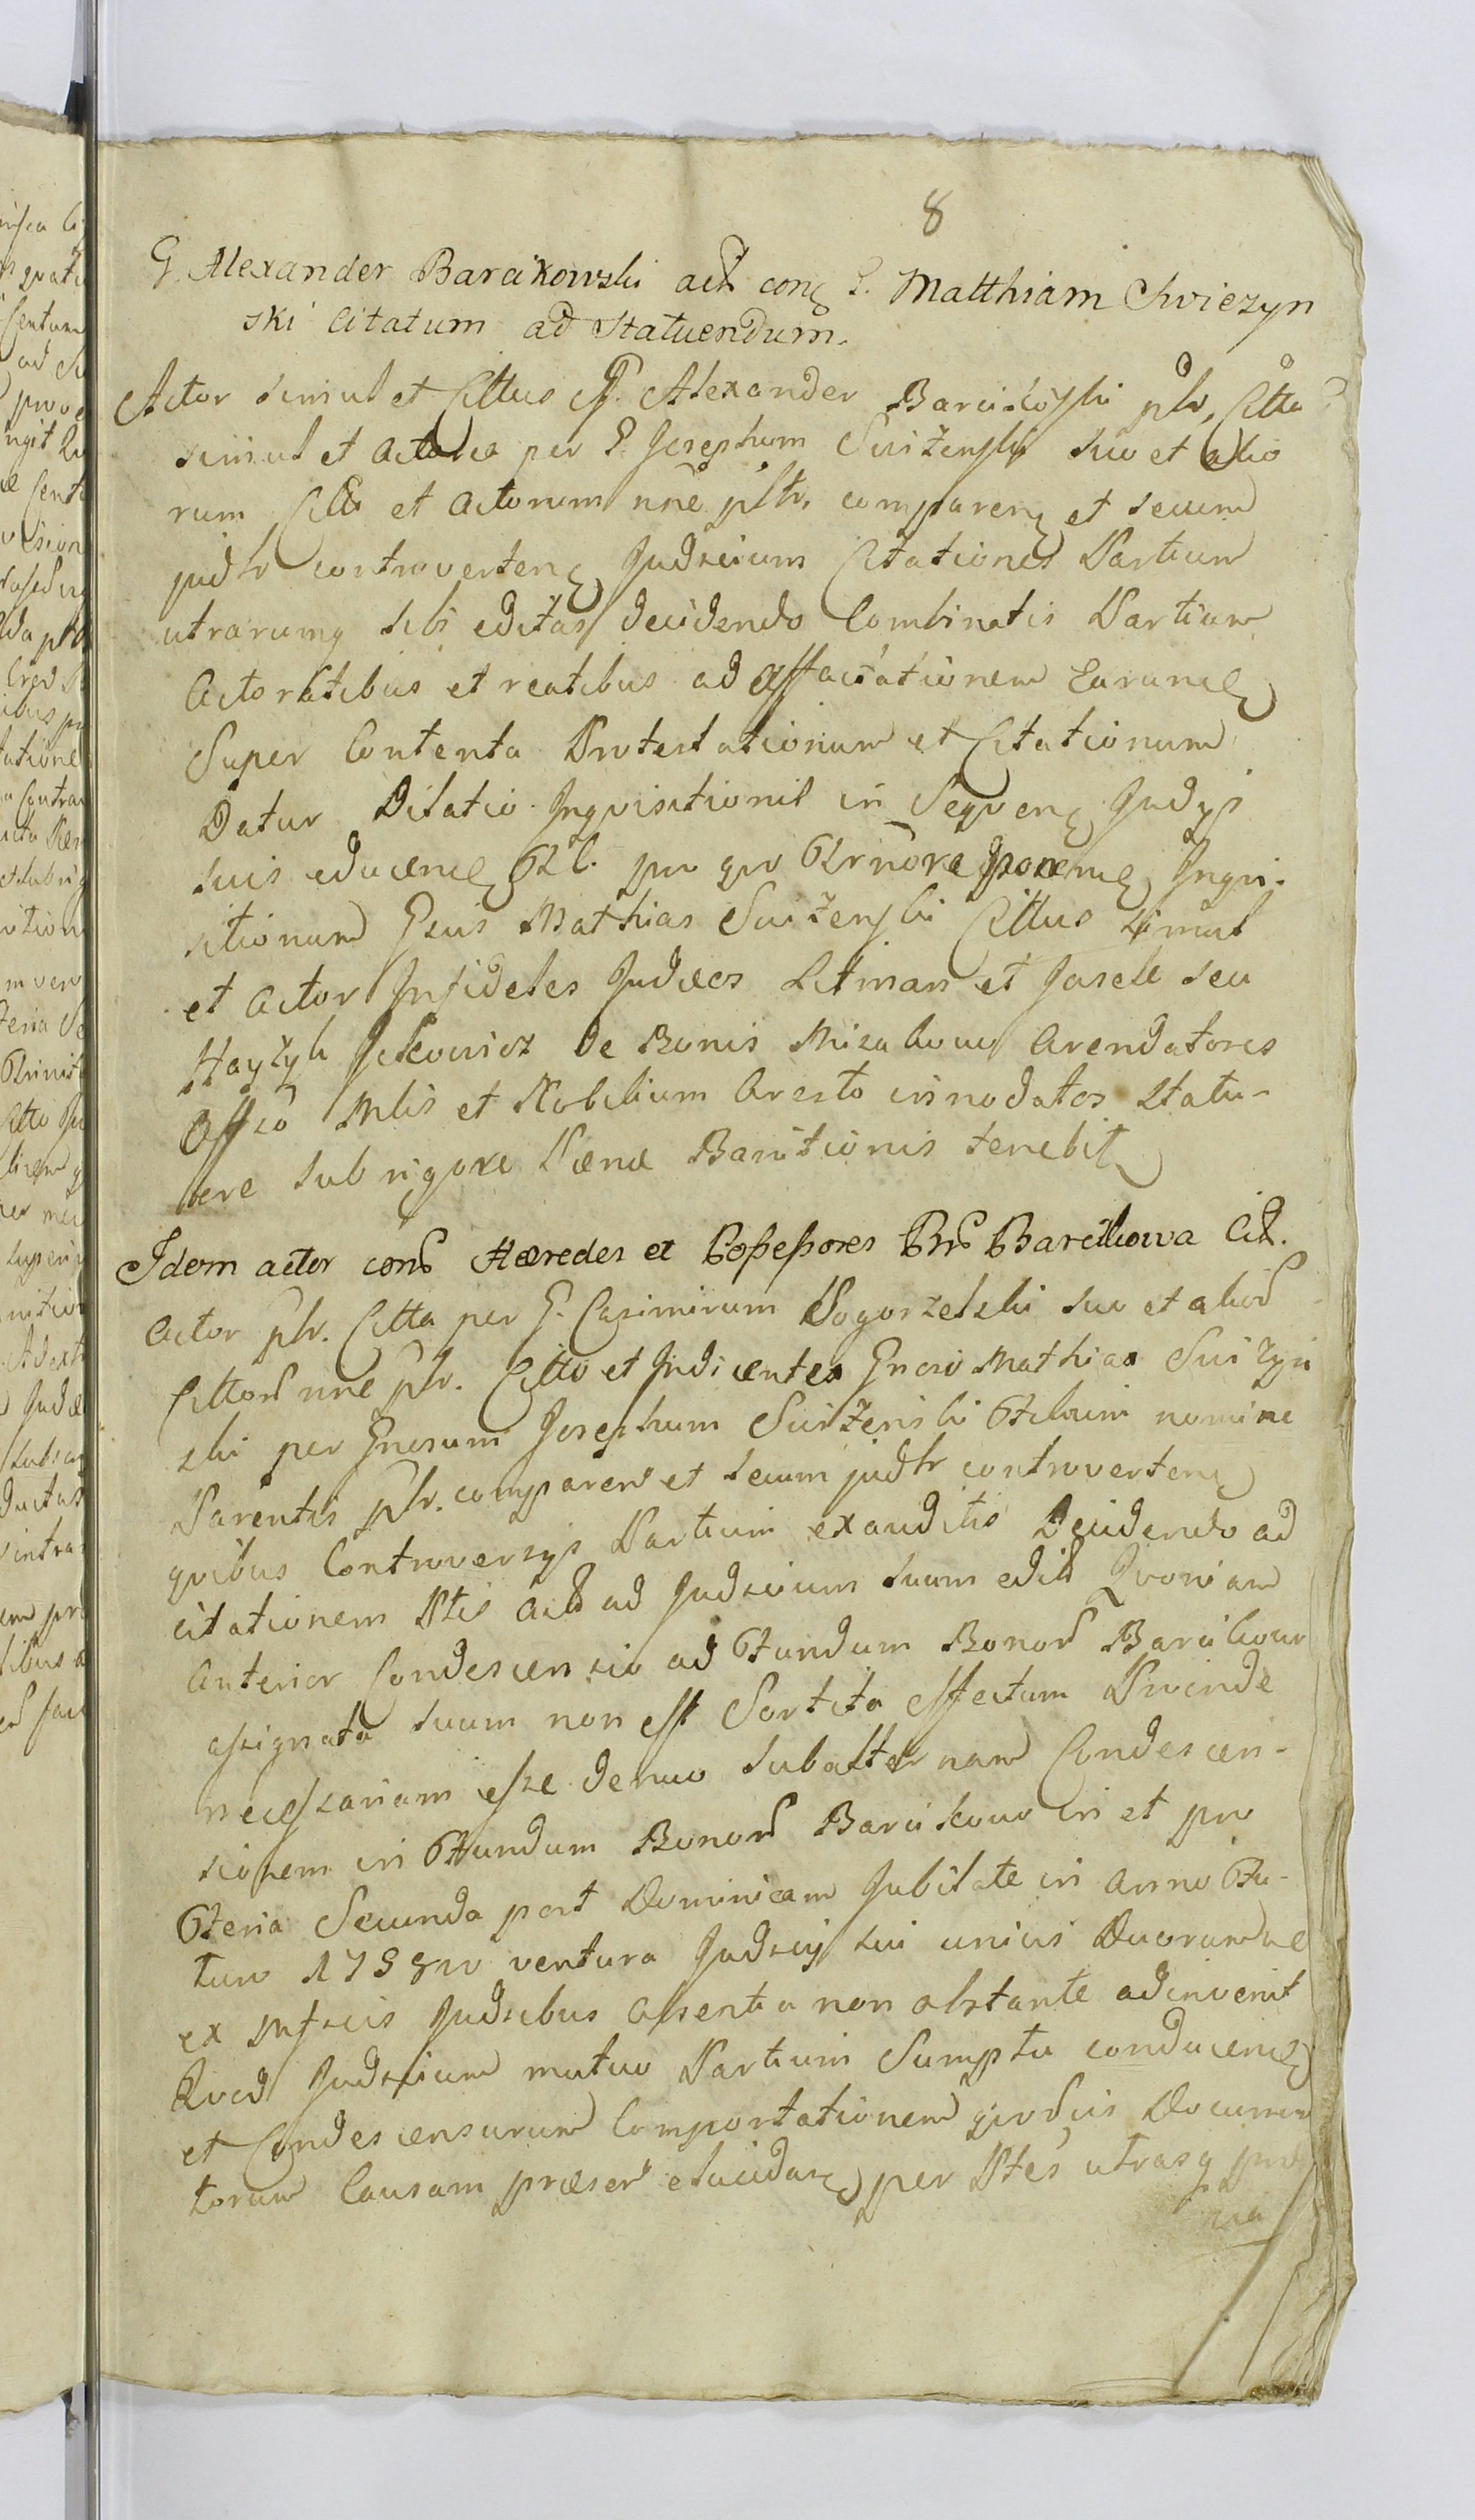 8
G. Alexander Barcikowski act. con. G. Matthiam Swiezyn
ski Citatum ad Statuendum.
Actor simul et Cittus G. Alexander Barcikoski plr, Citta
simul et Actorea per G. Josephum Swizenski suo et alio
rum Citt. et Actorum nne pltr. comparen et secum
judlr controverten Judicium Citationes Partium
utrarumq sibi editas decidendo Combinatis Partium
Actoratibus et reatibus ad affactationem Earund
Super Contenta Protestationum et Citationum
Datur Dilatio Inqvisitionis in Seqven Judijs
suis educend Pl. pro qvo Termore Inqvi-
sitionum Gsus Mathias Swizenski Cittus simul
et Actor Infideles Judæos Litman et Josele seu
Hayzyk Jckowicz de Bonis Arendatores
Offio Mlis et Nobilium Aresto innodatos statu-
ere sub rigore Pænæ Banitionis tenebit
Idem actor cons Hæredes et Possessores Bns Barcikowa Cit.
Actor plr. Citta per G. Casimirum Pogorzelski suo et alior
Cittors nne plr. Citto et Indicentes Gnoso Mathias Swizyn
ski per Gnosum Josephum Swizenski Filium nomine
Parentis plr. comparen et secum judlr controverten
qvibus Controversijs Partium exauditis Decidendo ad
citationem Ptis Act ad Judicium suum edit Qvoniam
anterior Condescensio ad Fundum Bonor Barcikow
assignata suum non est Sortita effectum Proinde
necessariam esse denuo Subalternam Condescen-
sionem in Fundum Bonor Barcikowo in et pro
Feria Secunda post Dominicam Jubilate in Anno Fu-
turo ventura Judicij sui unius Duorumve
ex Judicibus Absentia non obstante adinvenit
Qvod Judicium mutuo Partium Sumptu conducend
et Condescensurum Comportationem Documen
torum Causam præsen elucidare per Ptes utrasq